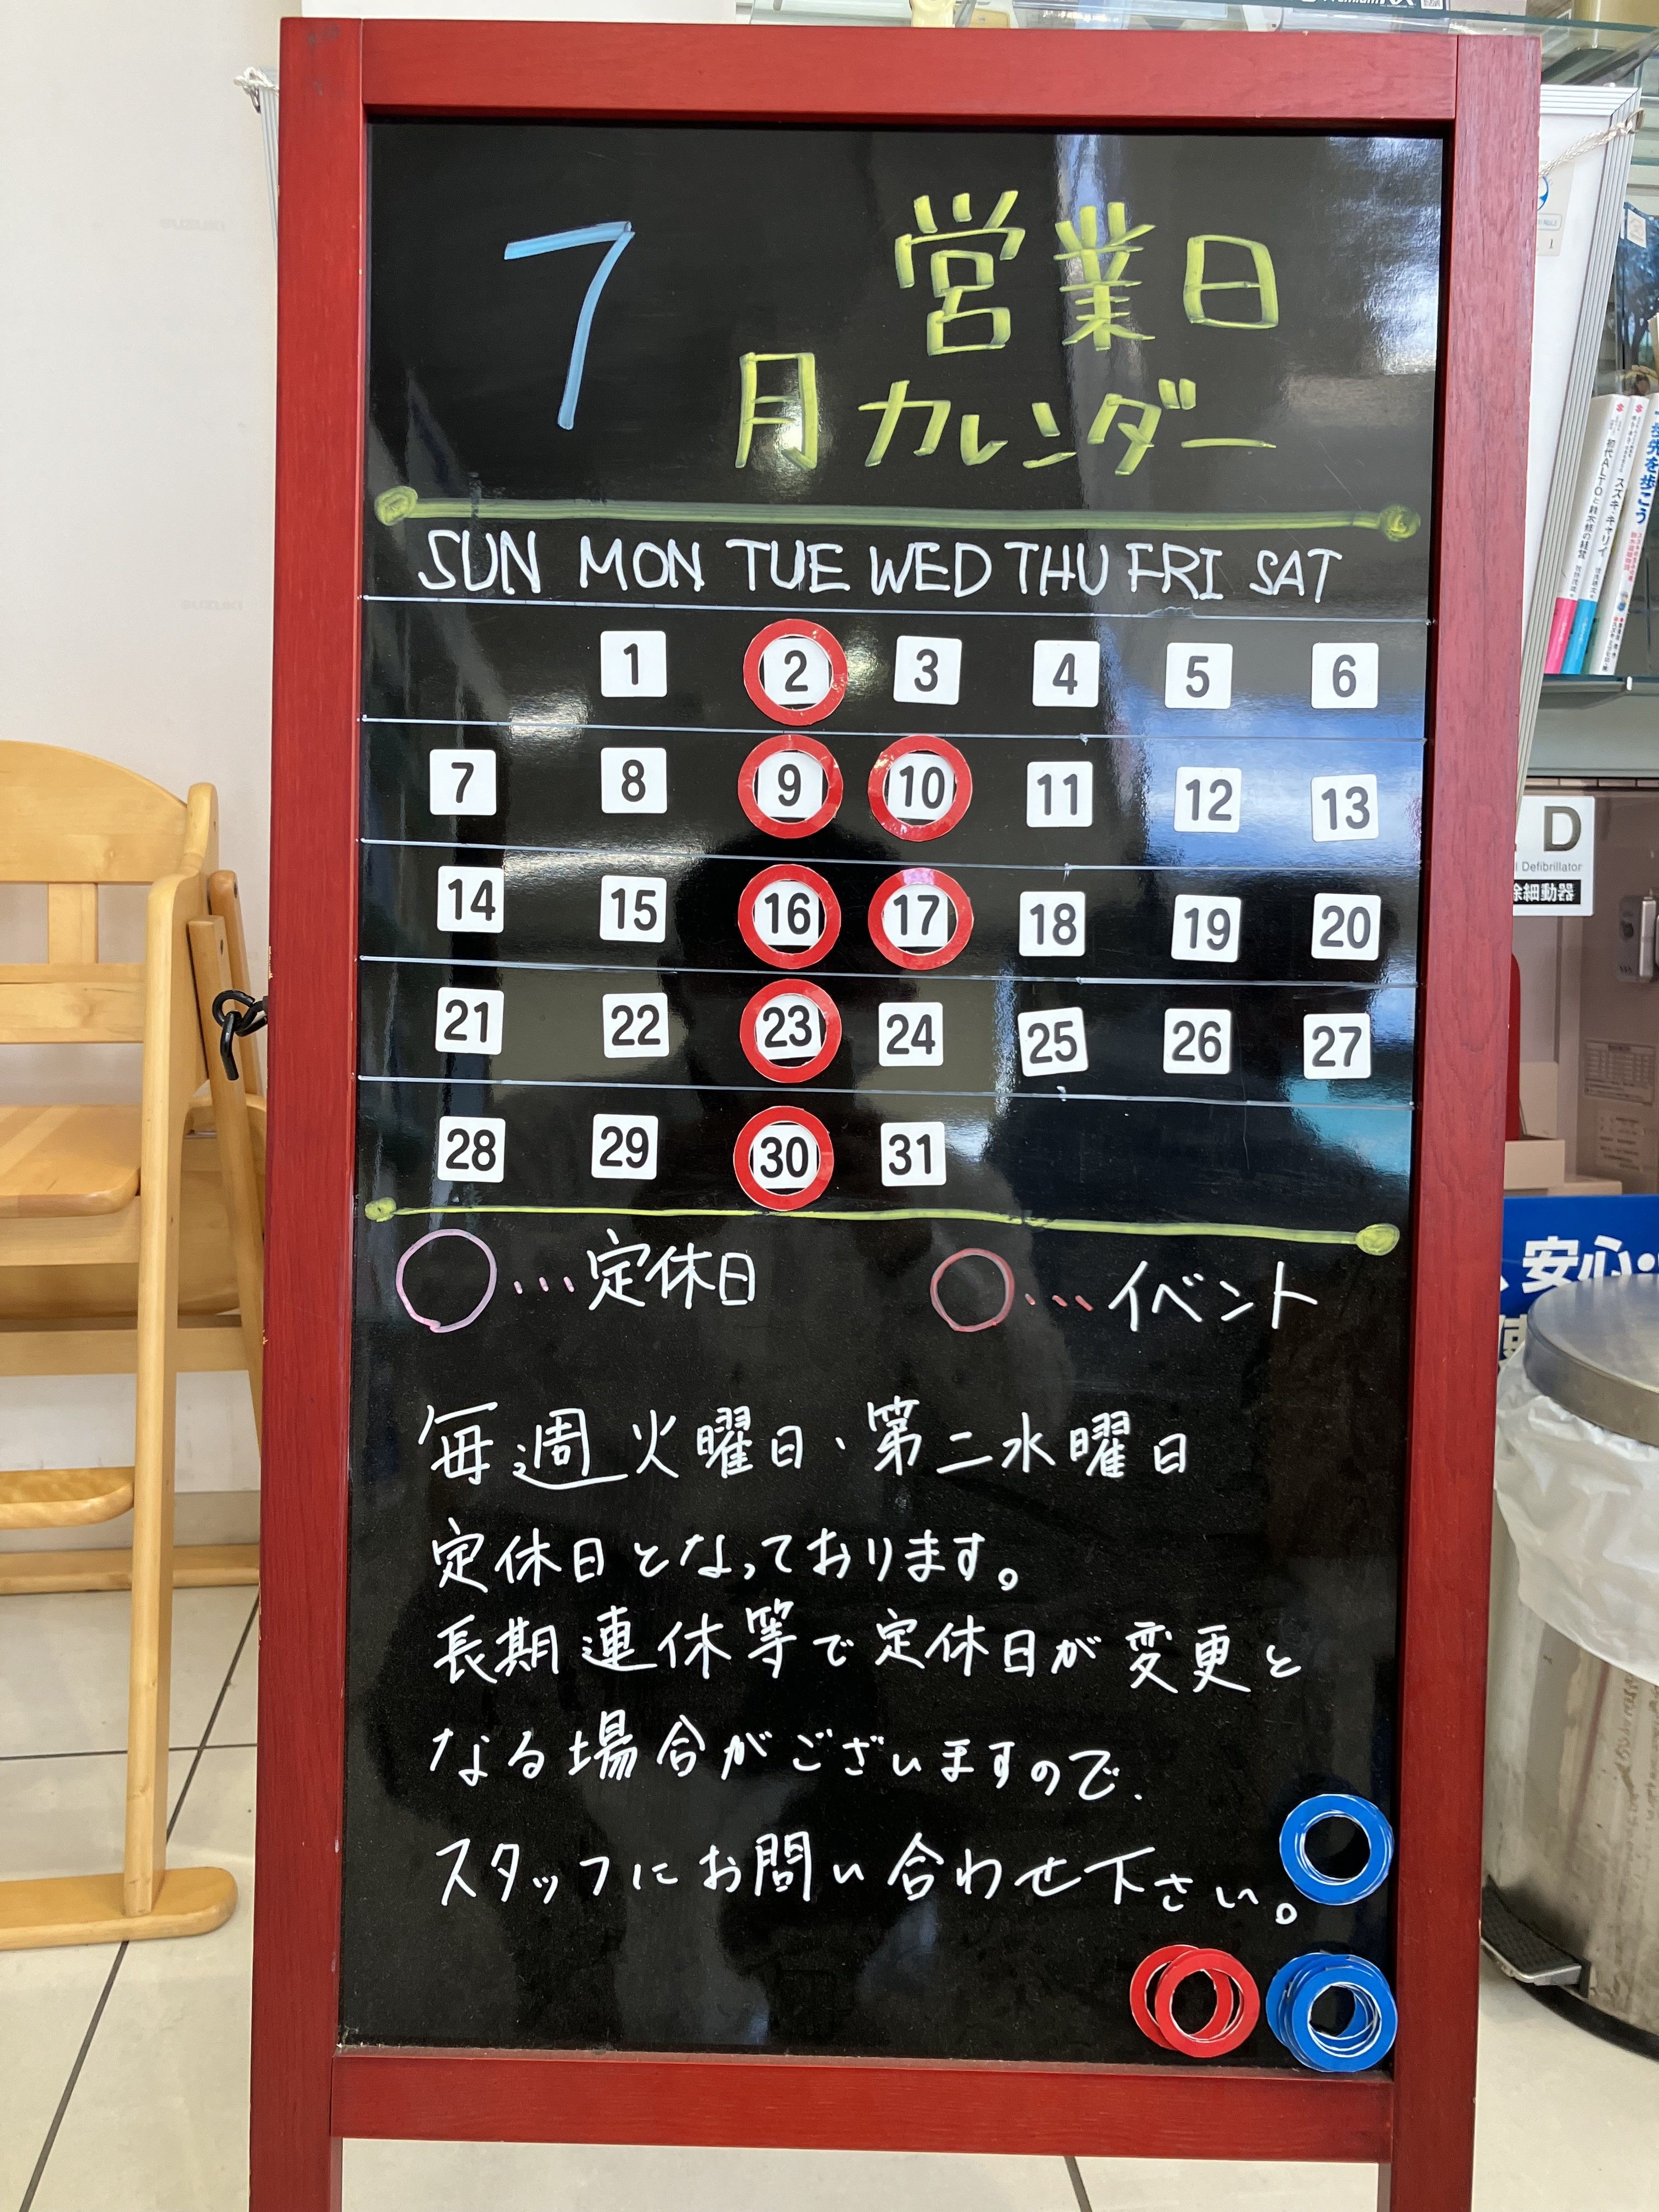 7
営業日
月カレンダー
SUN MON TUE WED THU FRI SAT
1 2 3 4 5 6
7 8 9 10 11 12 13
14 15 16 17 18 19 20
21 22 23 24 25 26 27
28 29 30 31
○…定休日 ○…イベント
毎週火曜日・第二水曜日
定休日となっております。
長期連休等で定休日が変更と
なる場合がございますので、
スタッフにお問い合わせ下さい。
D
Defibrillator
除細動器
安心・